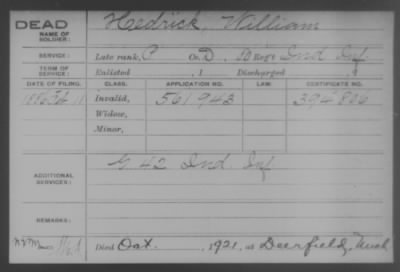 DEAD
NAME OF SOLDIER:
Hedrick, William
SERVICE:
Late rank, P Co. D, Reg't Ind Inf
TERM OF SERVICE:
Enlisted , 1 Discharged , 1
DATE OF FILING. CLASS. APPLICATION NO. LAW. CERTIFICATE NO.
1886 Invalid, 561943 394806
Widow,
Minor,
ADDITIONAL SERVICES:
G 42 Ind Inf
REMARKS:
Died Oct , 1921, at Deerfield, Mich